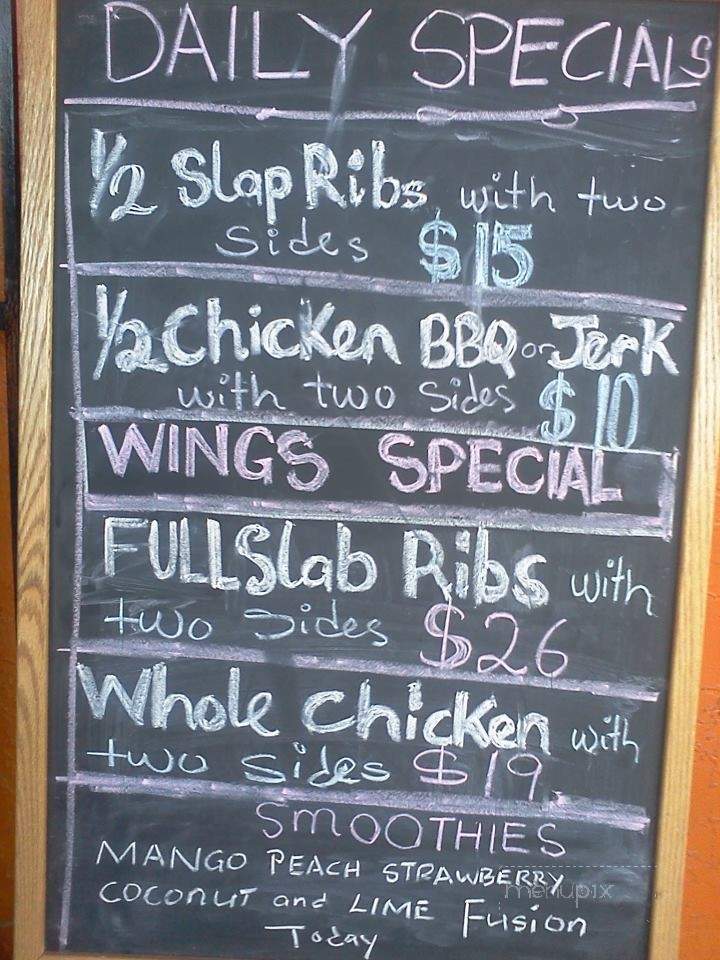 DAILY SPECIALS
1/2 Slap Ribs with two
Sides $15
1/2 Chicken BBQ or Jerk
with two Sides $10
WINGS SPECIAL
FULL Slab Ribs with
two Sides $26
Whole Chicken with
two Sides $19
SmOOTHIES
MANGO PEACH STRAWBERRY
COCONUT and LIME Fusion
Today
menupix